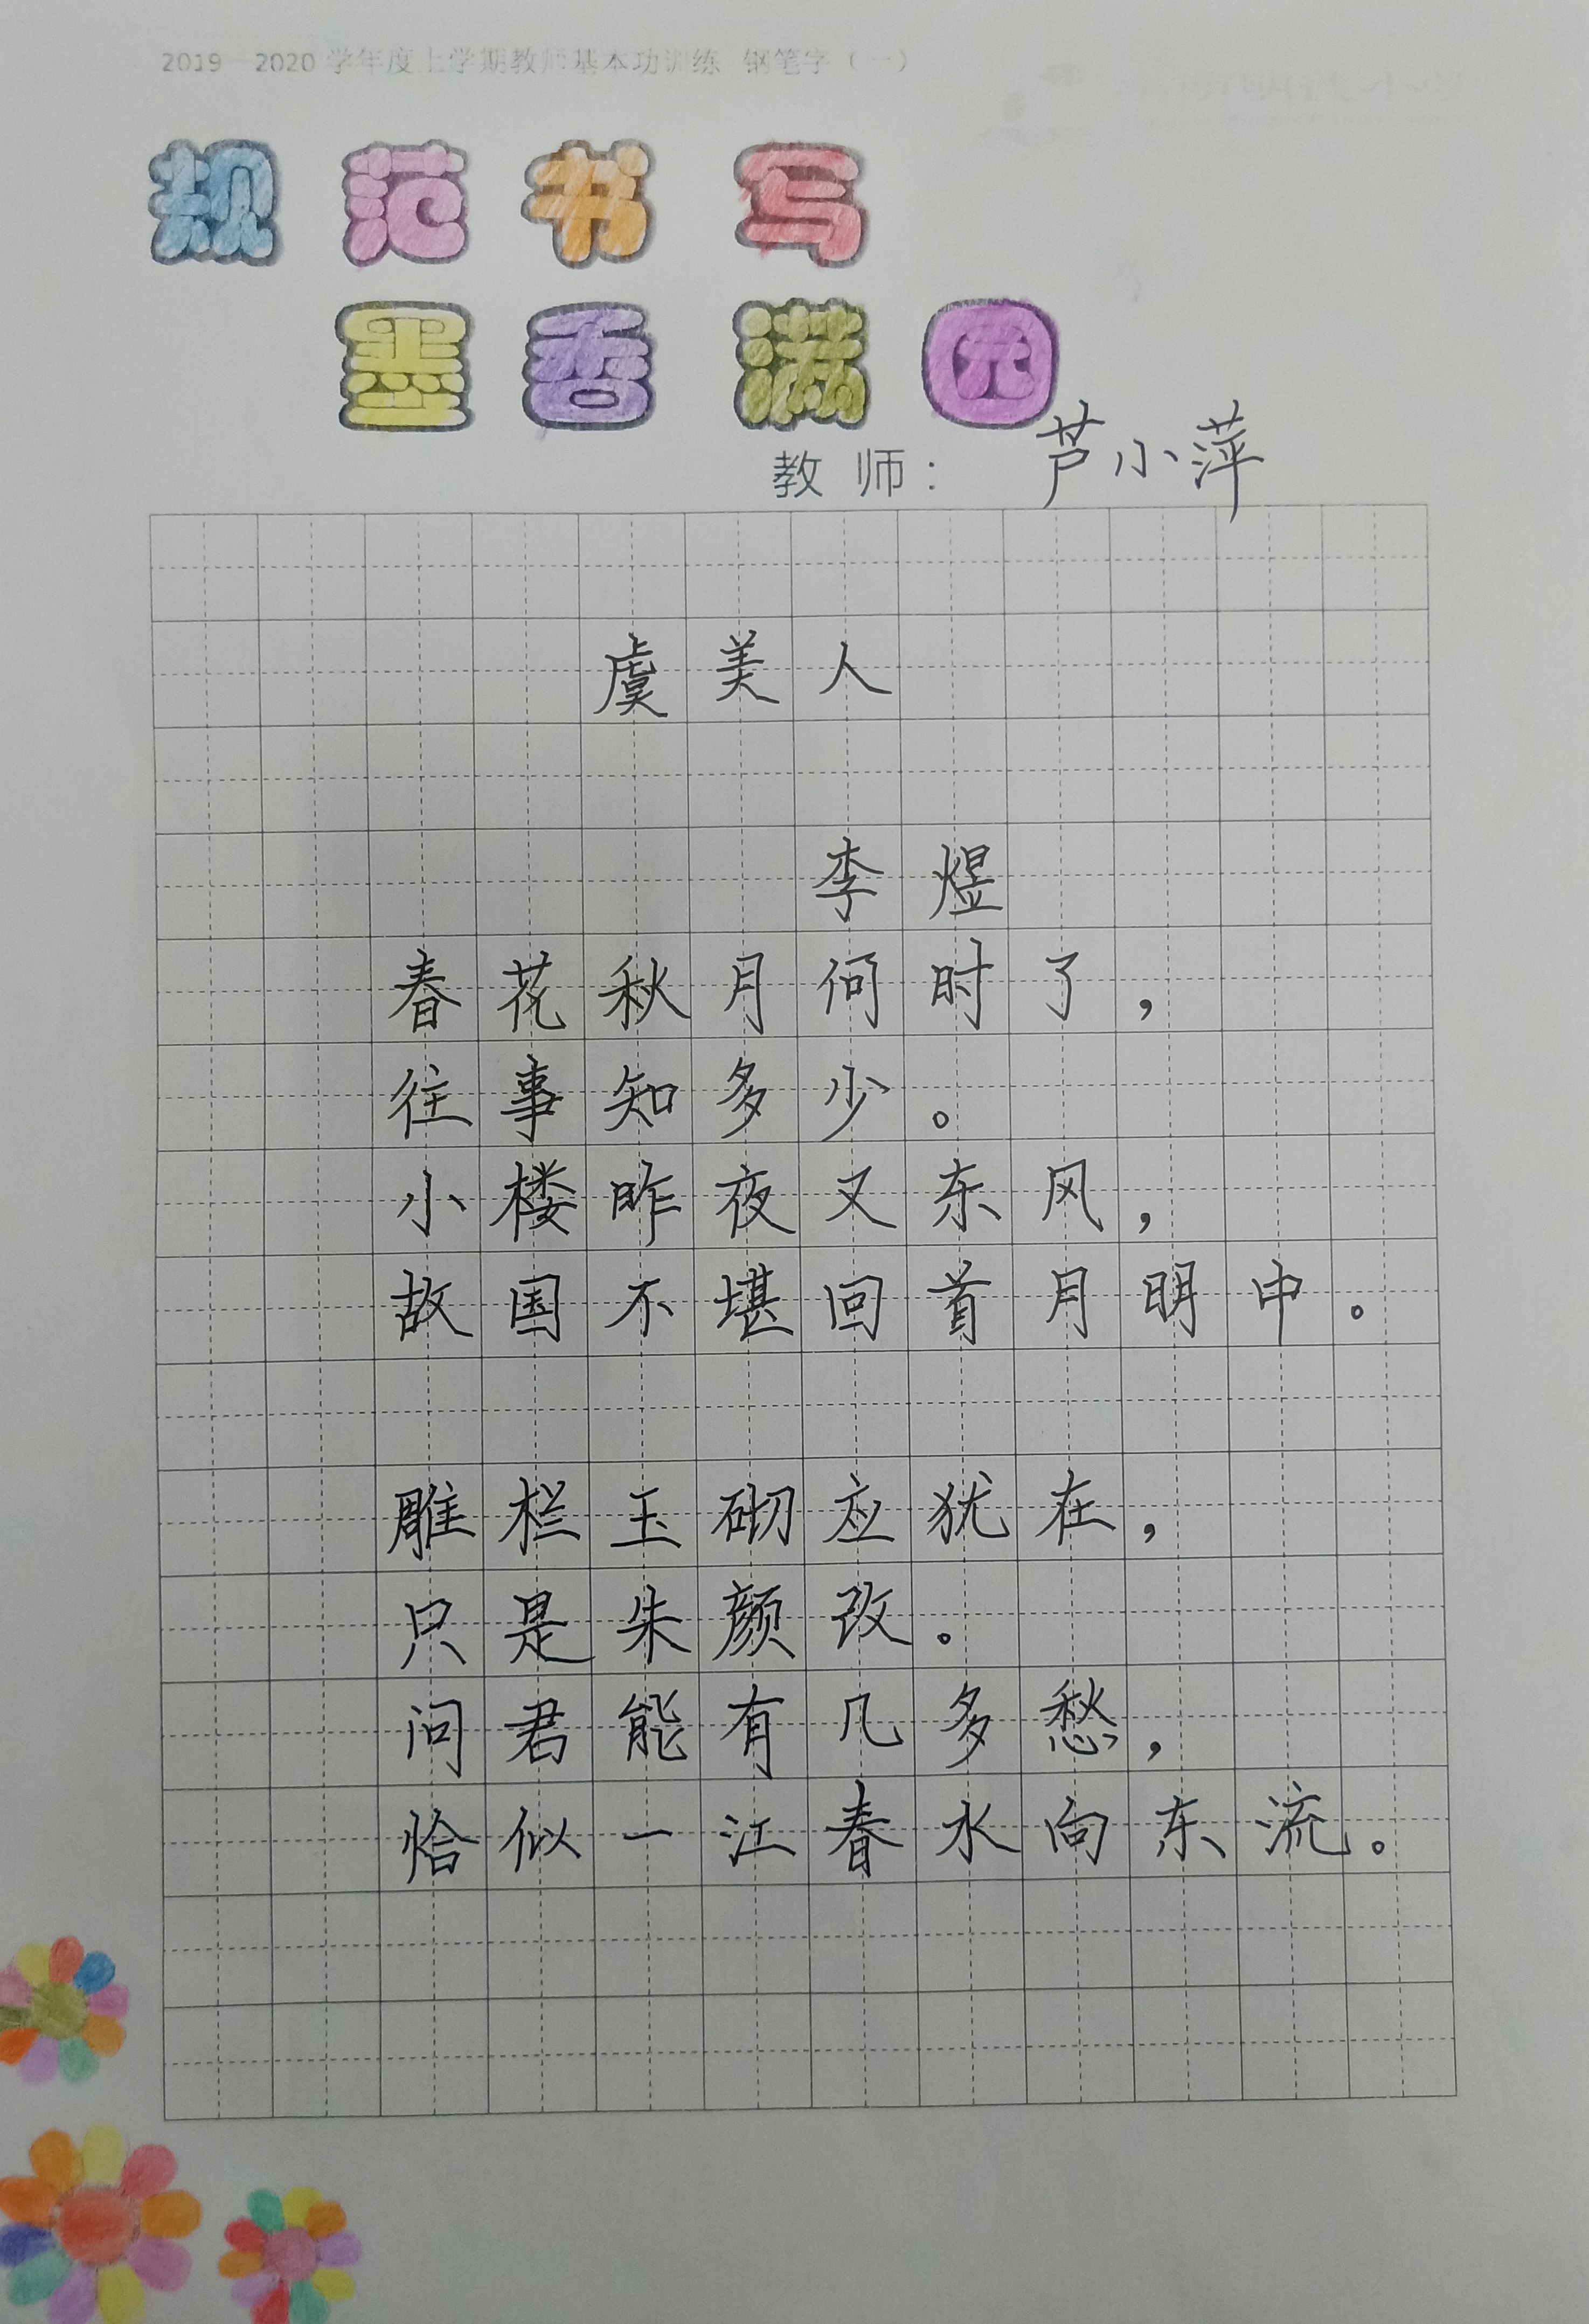 2019—2020 学年度上学期教师基本功训练 钢笔字（一）
规范书写
墨香满园
教 师： 芦小萍
虞美人
李煜
春花秋月何时了，
往事知多少。
小楼昨夜又东风，
故国不堪回首月明中。
雕栏玉砌应犹在，
只是朱颜改。
问君能有几多愁，
恰似一江春水向东流。